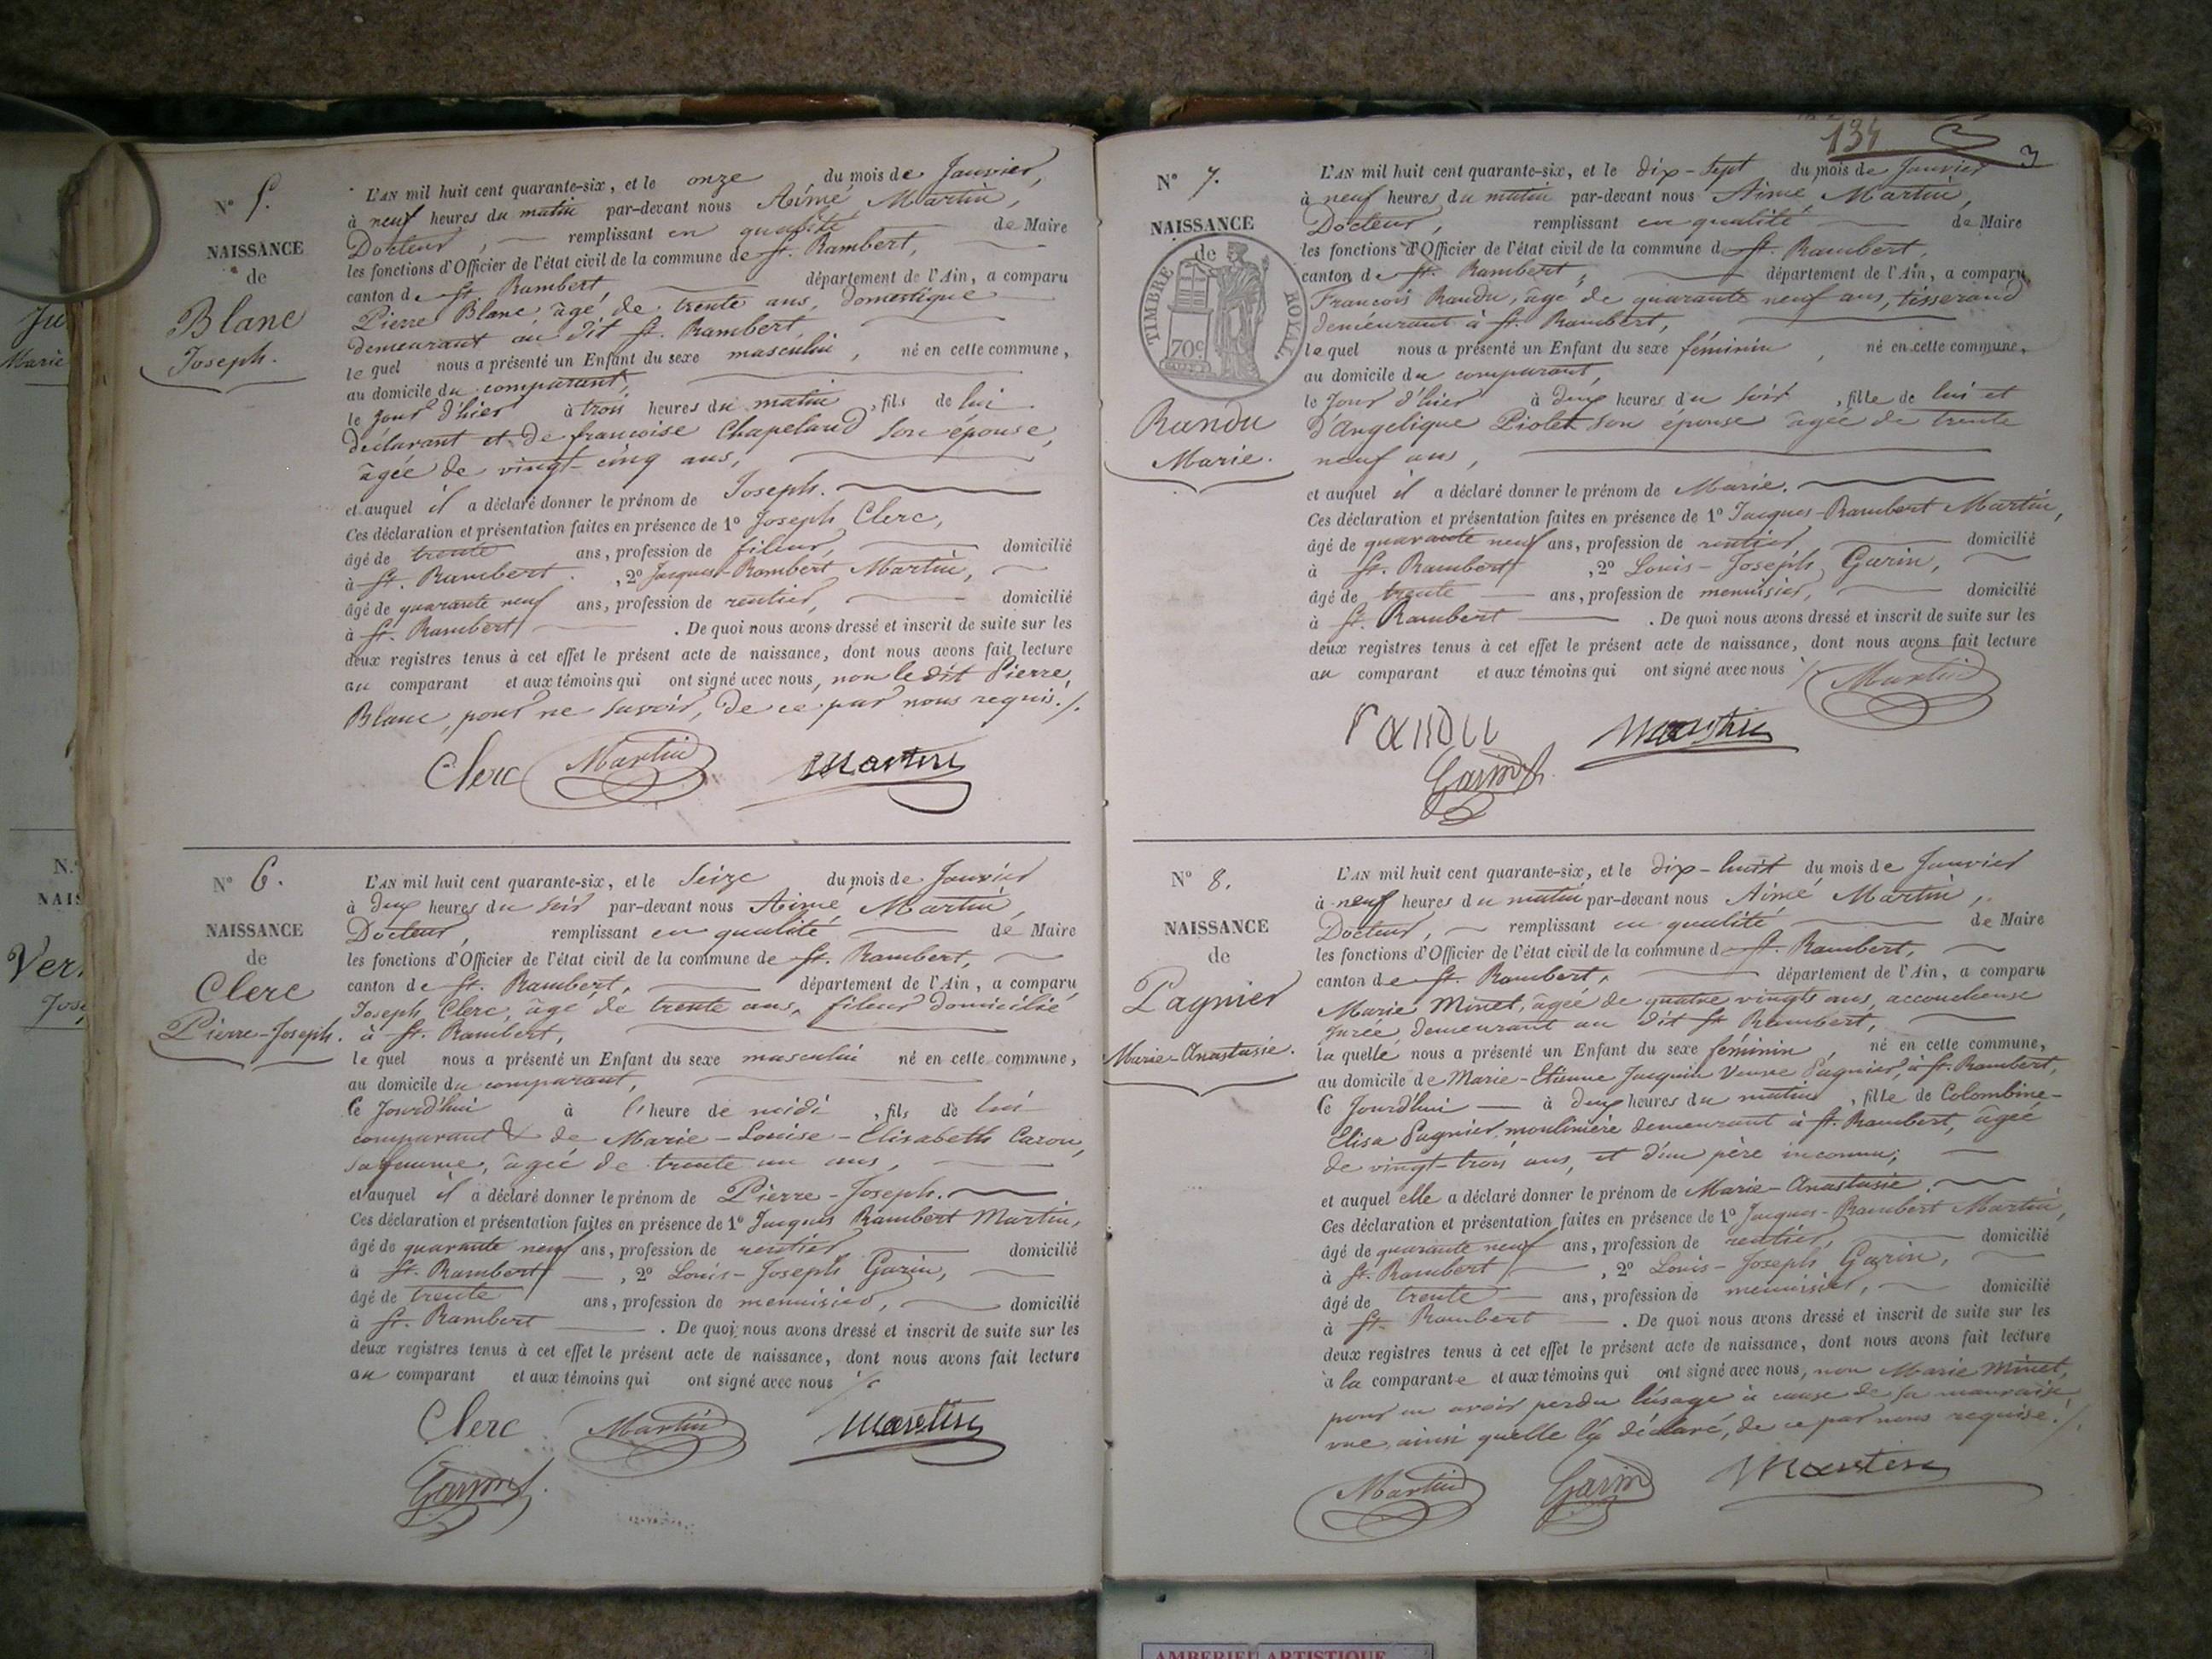 N° 5.
NAISSANCE
de
Blanc
Joseph.
L'AN mil huit cent quarante-six, et le onze du mois de Janvier,
à neuf heures du matin par-devant nous Aimé Martin,
Docteur, remplissant en qualité de Maire
les fonctions d'Officier de l'état civil de la commune de St. Rambert,
canton de St. Rambert, département de l'Ain, a comparu
Pierre Blanc, âgé de trente ans, domestique
demeurant au dit St. Rambert,
le quel nous a présenté un Enfant du sexe masculin, né en cette commune,
au domicile du comparant,
le jour d'hier à trois heures du matin, fils de lui
déclarant et de francoise Chapeland son épouse,
âgée de vingt-cinq ans,
et auquel il a déclaré donner le prénom de Joseph.
Ces déclaration et présentation faites en présence de 1° Joseph Clerc,
âgé de trente ans, profession de fileur, domicilié
à St. Rambert. , 2° Jacques-Rambert Martin,
âgé de quarante neuf ans, profession de rentier, domicilié
à St. Rambert . De quoi nous avons dressé et inscrit de suite sur les
deux registres tenus à cet effet le présent acte de naissance, dont nous avons fait lecture
au comparant et aux témoins qui ont signé avec nous, non le dit Pierre
Blanc, pour ne savoir, de ce par nous requis./.
Clerc Martin Martin
N° 6.
NAISSANCE
de
Clerc
Pierre-Joseph.
L'AN mil huit cent quarante-six, et le Seize du mois de Janvier
à deux heures du soir par-devant nous Aimé Martin,
Docteur, remplissant en qualité de Maire
les fonctions d'Officier de l'état civil de la commune de St. Rambert,
canton de St. Rambert, département de l'Ain, a comparu
Joseph Clerc, âgé de trente ans, fileur domicilié
à St. Rambert,
le quel nous a présenté un Enfant du sexe masculin né en cette commune,
au domicile du comparant,
Ce Jourd'hui à l'heure de midi, fils de lui
comparant & de Marie-Louise-Elisabeth Caron,
sa femme, âgée de trente un ans,
et auquel il a déclaré donner le prénom de Pierre-Joseph.
Ces déclaration et présentation faites en présence de 1° Jacques Rambert Martin,
âgé de quarante neuf ans, profession de rentier domicilié
à St. Rambert , 2° Louis-Joseph Garin,
âgé de trente ans, profession de menuisier, domicilié
à St. Rambert . De quoi nous avons dressé et inscrit de suite sur les
deux registres tenus à cet effet le présent acte de naissance, dont nous avons fait lecture
au comparant et aux témoins qui ont signé avec nous ./.
Clerc Martin Martin
Garin
134
3
N° 7.
NAISSANCE
de
TIMBRE ROYAL.
70c
Randu
Marie.
L'AN mil huit cent quarante-six, et le dix-sept du mois de Janvier
à neuf heures du matin par-devant nous Aimé Martin,
Docteur, remplissant en qualité de Maire
les fonctions d'Officier de l'état civil de la commune d St. Rambert,
canton de St. Rambert, département de l'Ain, a comparu
Francois Randu, âgé de quarante neuf ans, tisserand
demeurant à St. Rambert,
le quel nous a présenté un Enfant du sexe féminin, né en cette commune,
au domicile du comparant,
le Jour d'hier à deux heures du soir, fille de lui et
d'Angelique Piolet son épouse âgée de trente
neuf ans,
et auquel il a déclaré donner le prénom de Marie.
Ces déclaration et présentation faites en présence de 1° Jacques-Rambert Martin,
âgé de quarante neuf ans, profession de rentier domicilié
à St. Rambert , 2° Louis-Joseph Garin,
âgé de trente ans, profession de menuisier, domicilié
à St. Rambert . De quoi nous avons dressé et inscrit de suite sur les
deux registres tenus à cet effet le présent acte de naissance, dont nous avons fait lecture
au comparant et aux témoins qui ont signé avec nous ./. Martin
randu Martin
Garin
N° 8.
NAISSANCE
de
Pagnier
Marie-Anastasie.
L'AN mil huit cent quarante-six, et le dix-huit du mois de Janvier
à neuf heures du matin par-devant nous Aimé Martin,
Docteur, remplissant en qualité de Maire
les fonctions d'Officier de l'état civil de la commune d St. Rambert,
canton de St. Rambert, département de l'Ain, a comparu
Marie Minet, âgée de quatre vingts ans, accoucheuse
jurée demeurant au dit St Rambert,
la quelle nous a présenté un Enfant du sexe féminin, né en cette commune,
au domicile de Marie-Etienne Jacquin Veuve Pagnier, à St. Rambert,
Ce Jourd'hui à deux heures du matin, fille de Colombine-
Elisa Pagnier, moulinière demeurant à St. Rambert, âgée
de vingt-trois ans, et d'un père inconnu,
et auquel elle a déclaré donner le prénom de Marie-Anastasie.
Ces déclaration et présentation faites en présence de 1° Jacques-Rambert Martin,
âgé de quarante neuf ans, profession de rentier, domicilié
à St. Rambert , 2° Louis-Joseph Garin,
âgé de trente ans, profession de menuisier, domicilié
à St. Rambert . De quoi nous avons dressé et inscrit de suite sur les
deux registres tenus à cet effet le présent acte de naissance, dont nous avons fait lecture
à la comparante et aux témoins qui ont signé avec nous, non Marie Minet,
pour en avoir perdu l'usage à cause de sa mauvaise
vue, ainsi quelle l'a déclaré, de ce par nous requise./.
Martin Garin Martin
AMBERIEU ARTISTIQUE